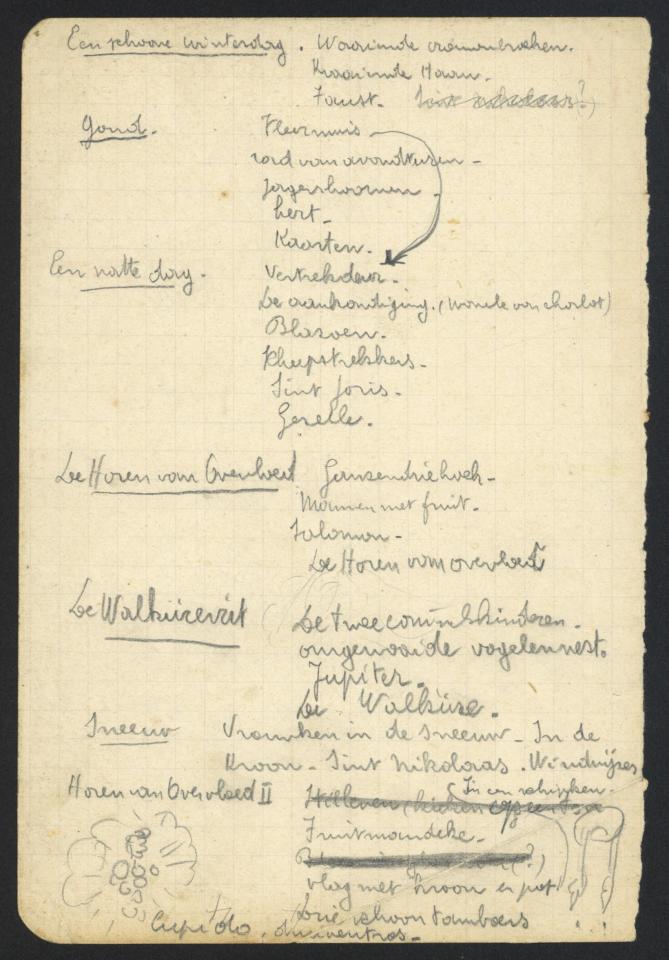 Een schoone winterdag. Waaiende vrouwenrokken.
Kraaiende Haan.
Faust.
Goud. Vleermuis
rad van avonturen -
jagershoornen -
hert -
Kaarten.
Een natte dag. Vertrekdeur.
De aankondiging. (Wonele van Charlot)
Blazoen.
Sint Joris -
Gezelle.
De Horen van Overvloed Ganzendriehoek -
Mannen met fruit -
Salomon -
De Horen van overvloed
De Walkürerit De twee conin(g)skinderen -
omgewaaide vogelennest.
Jupiter.
De Walküre.
Sneeuw Vrouwken in de sneeuw - In de
Kroon - Sint Nikolaas. Windwijzer
Horen van Overvloed II Stilleven In een schipken -
Fruitmandeke -
vlag met kroon en pot
Drie schoon tamboers
Cupido.